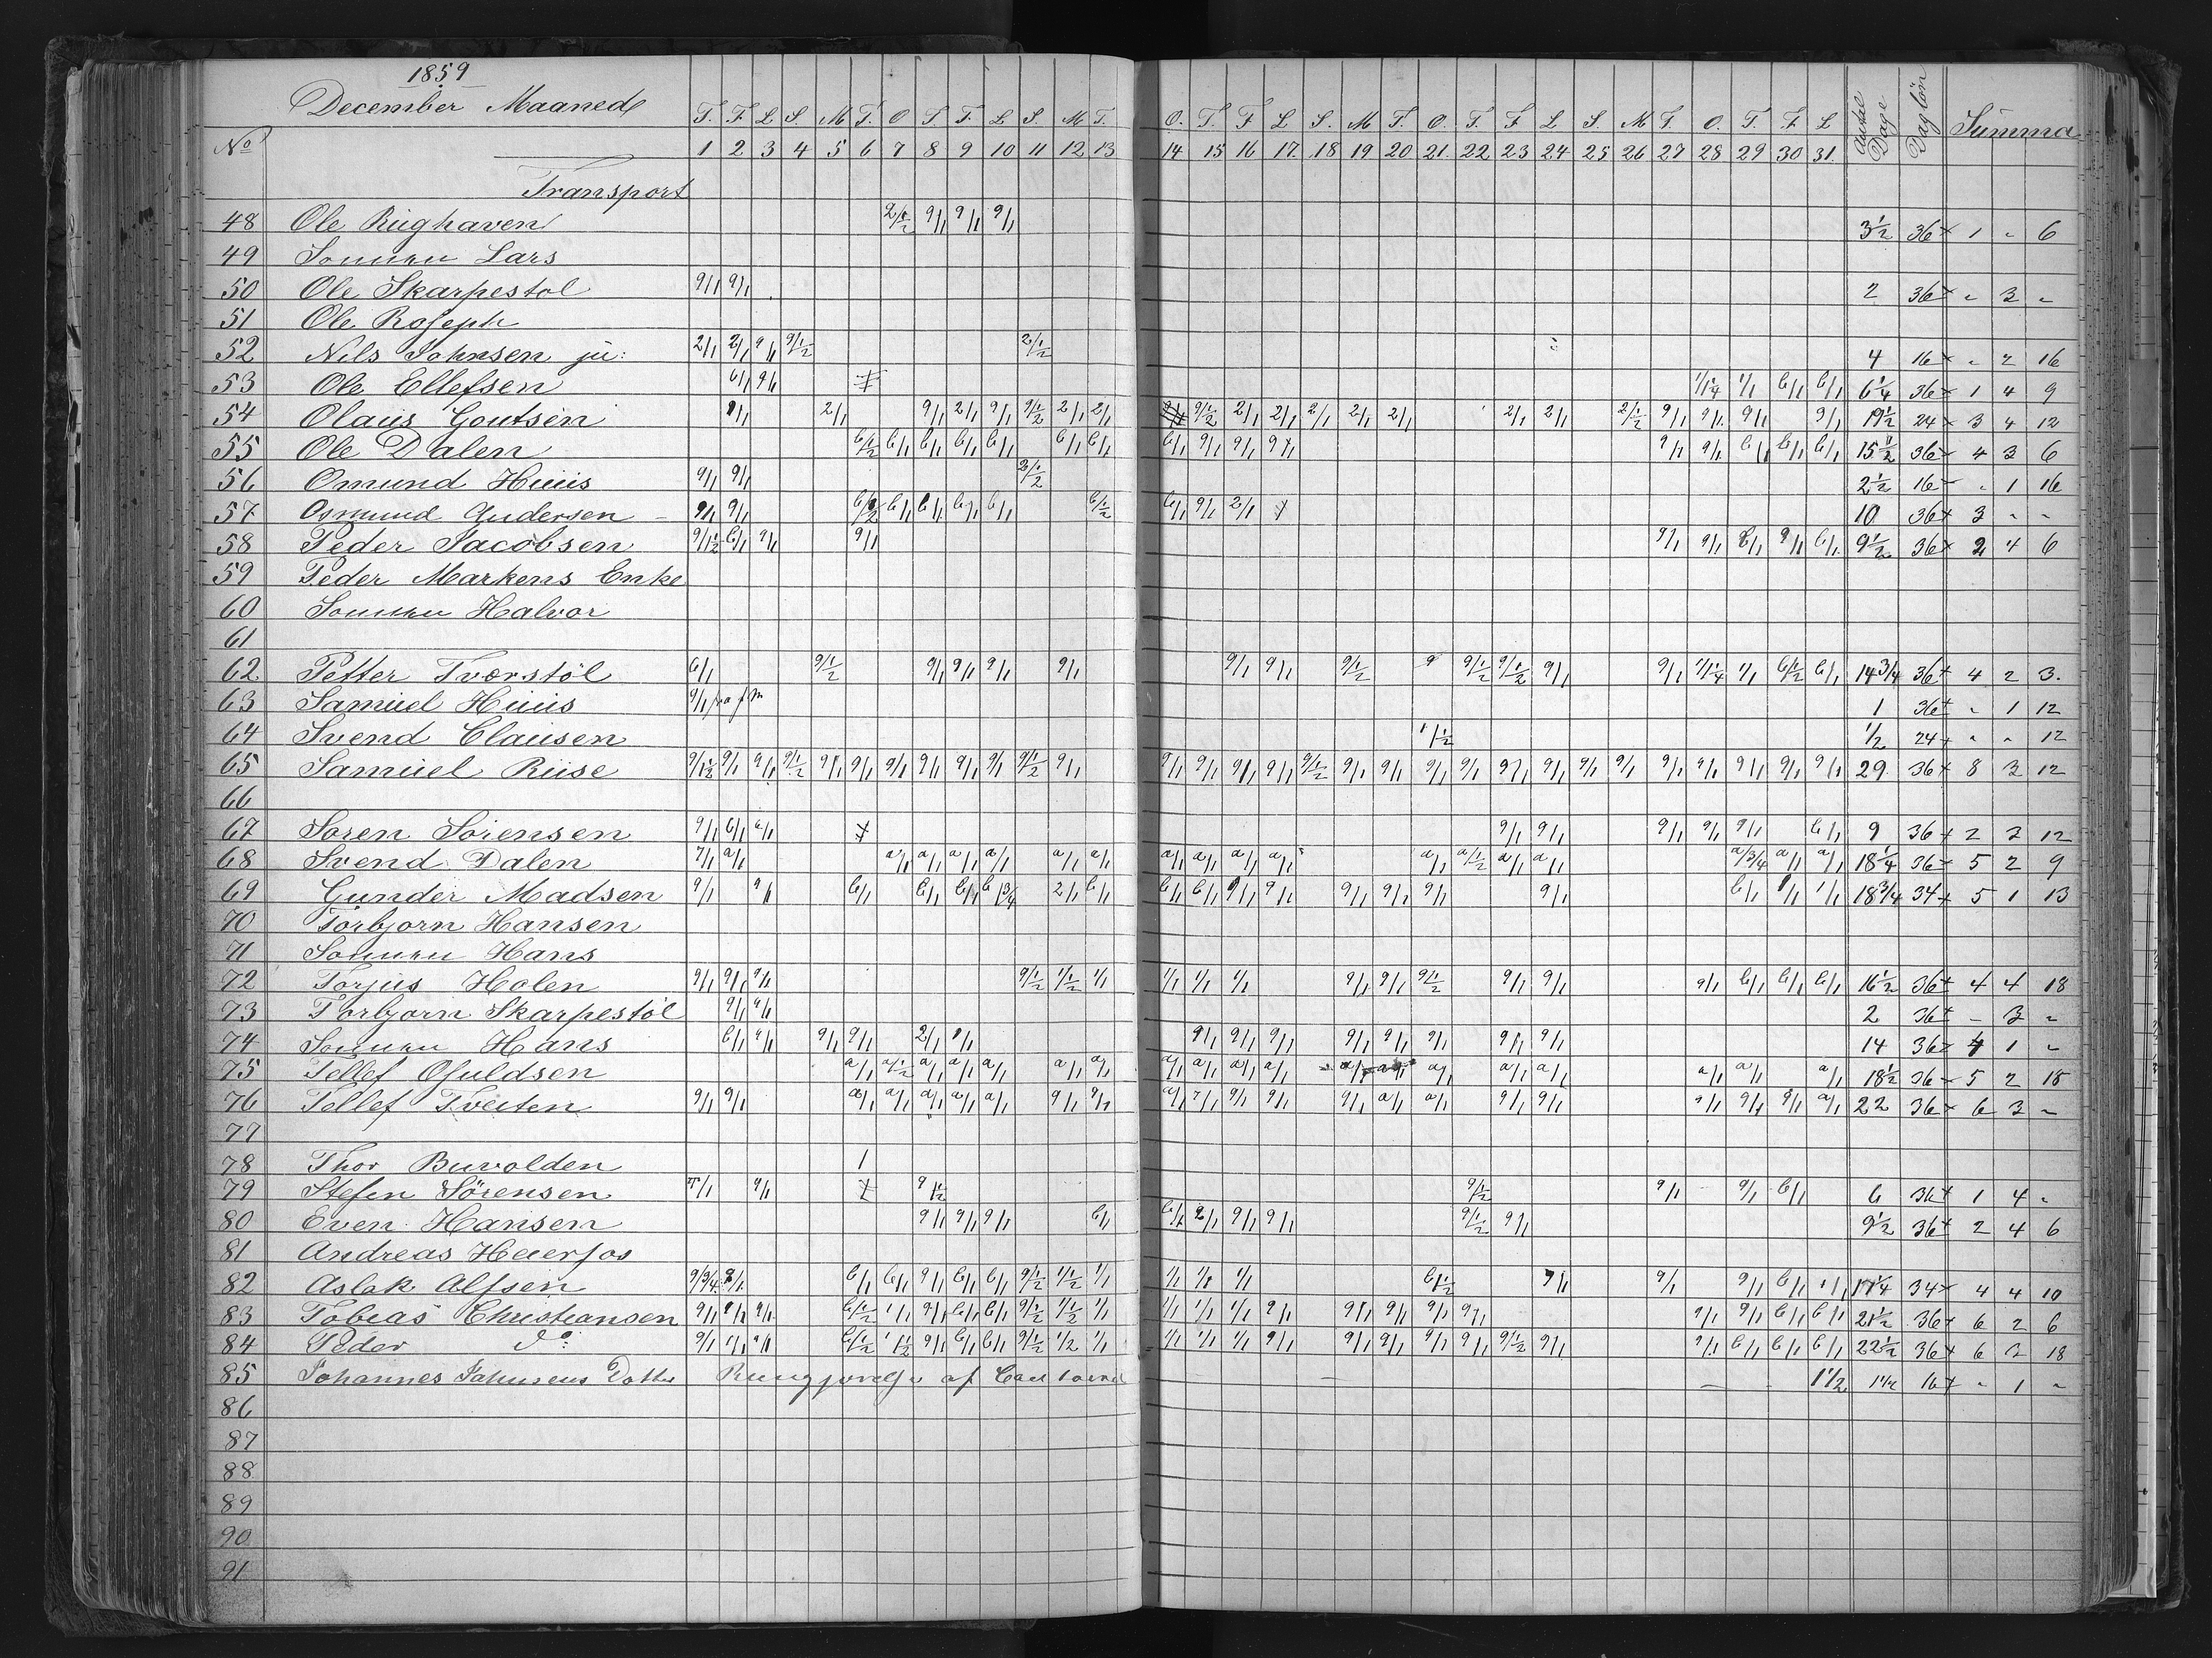 1859
December Maaned
T. F. L. S. M T. O T. F. L S. M T. O. T. F L S. M T. O. T. F L S. M T. O. T. F L Antal Dage Dag lön Summa
No 1 2 3 4 5 6 7 8 9 10 11 12 13 14 15 16 17. 18 19 20 21. 22 23 24 25 26 27 28 29 30 31.
Transport
48 Ole Rüghaven 2/½ 9/1 9/1 9/1 3½ 36 1 " 6
49 Sonnen Lars
50 Ole Skarpestol 9/1 9/1 2 36 " 3 "
51 Ole Roseph
52 Nils Johnsen jü: 2/1 2/1 9/1 9/½ 2/½ 4 16 " 2 16
53 Ole Ellefsen 6/1 9/1 1/1¼ 1/1 6/1 6/1 6¼ 36 1 4 9
54 Olaüs Goutsen 9/1 2/1 9/1 2/1 9/1 9/½ 2/1 2/1 9/½ 2/1 2/1 2/1 2/1 2/1 2/1 2/1 2/½ 9/1 9/1 9/1 9/1 19½ 24 3 4 12
55 Ole Dalen 6/½ 6/1 6/1 6/1 6/1 6/1 6/1 6/1 9/1 9/1 9/1 9/1 9/1 6/1 6/1 6/1 15½ 36 4 3 6
56 Omund Hüüs 9/1 9/1 2/½ 2½ 16 " 1 16
57 Osmund Andersen 9/1 9/1 6/½ 6/1 6/1 6/1 6/1 6/½ 6/1 9/1 2/1 10 36 3 " "
58 Peder Jacobsen 9/1½ 6/1 9/1 9/1 9/1 9/1 6/1 9/1 6/1 9½ 36 2 4 6
59 Peder Markens Enke
60 Sonnen Halvor
61
62 Petter Tværstöl 6/1 9/½ 9/1 9/1 9/1 9/1 9/1 9/1 9/½ 9 9/½ 9/½ 9/1 9/1 1/1¼ 1/1 6/½ 6/1 14¾ 36 4 2 3.
63 Samüel Hüüs 9/1 1 36 " 1 12
64 Svend Claüsen 1/½ ½ 24 " " 12
65 Samüel Rüse 9/1½ 9/1 9/1 9/½ 9/1 9/1 9/1 9/1 9/1 9/1 9/½ 9/1 9/1 9/1 9/1 9/1 9/½ 9/1 9/1 9/1 9/1 9/1 9/1 9/1 9/1 9/1 9/1 9/1 9/1 9/1 29 36 8 3 12
66
67 Søren Sørensen 9/1 6/1 6/1 9/1 9/1 9/1 9/1 9/1 6/1 9 36 2 3 12
68 Svend Dalen 7/1 a/1 a/1 a/1 a/1 a/1 a/1 a/1 a/1 a/1 a/1 a/1 a/1 a/½ a/1 a/1 a/¾ a/1 a/1 18¼ 36 5 2 9
69 Gunder Madsen 9/1 9/1 6/1 6/1 6/1 6/¾ 2/1 6/1 6/1 6/1 9/1 9/1 9/1 9/1 9/1 9/1 6/1 9/1 1/1 18¾ 34 5 1 13
70 Torbjorn Hansen
71 Sonnen Hans
72 Torjus Holen 9/1 9/1 9/1 9/½ 1/½ 1/1 1/1 1/1 1/1 9/1 9/1 9/½ 9/1 9/1 9/1 6/1 6/1 6/1 16½ 36 4 4 18
73 Torbjorn Skarpestöl 9/1 9/1 2 36 - 3 "
74 Sonnen Hans 6/1 9/1 9/1 9/1 2/1 9/1 9/1 9/1 9/1 9/1 9/1 9/1 9/1 9/1 14 36 4 1 "
75 Tellef Osuldsen a/1 a/½ a/1 a/1 a/1 a/1 a/1 a/1 a/1 a/1 a/1 a/1 a/1 a/1 a/1 a/1 a/1 a/1 a/1 18½ 36 5 2 18
76 Tellef Tveiten 9/1 9/1 a/1 a/1 a/1 a/1 a/1 9/1 9/1 a/1 7/1 9/1 9/1 9/1 a/1 a/1 9/1 9/1 9/1 9/1 9/1 a/1 22 36 6 3 "
77
78 Thor Buvolden 1
79 Stefen Sörensen 7/1 9/1 9/½ 9/½ 9/1 9/1 6/1 6 36 1 4 "
80 Even Hansen 9/1 9/1 9/1 6/1 6/1 2/1 9/1 9/1 9/½ 9/1 9½ 36 2 4 6
81 Andreas Heierfos
82 Aslak Alfsen 9/¾ 9/1 6/1 6/1 9/1 6/1 6/1 9/½ 1/½ 1/1 1/1 1/1 1/1 6/½ 9/1 9/1 9/1 6/1 1/1 17¼ 34 4 4 10
83 Tobias Christiansen 9/1 9/1 9/1 6/½ 1/1 9/1 6/1 6/1 9/½ 1/½ 1/1 1/1 1/1 1/1 9/1 9/1 9/1 9/1 9/1 9/1 9/1 6/1 6/1 21½ 36 6 2 6
84 Peder do: 9/1 1/1 9/1 6/½ 1/½ 9/1 6/1 6/1 9/½ 1/2 1/1 1/1 1/1 1/1 9/1 9/1 9/1 9/1 9/1 9/½ 9/1 9/1 6/1 6/1 6/1 22½ 36 6 3 18
85 Johannes Jahnsens Datter Rengjorelse af 1½ 1½ 16 " 1 "
86
87
88
89
90
91